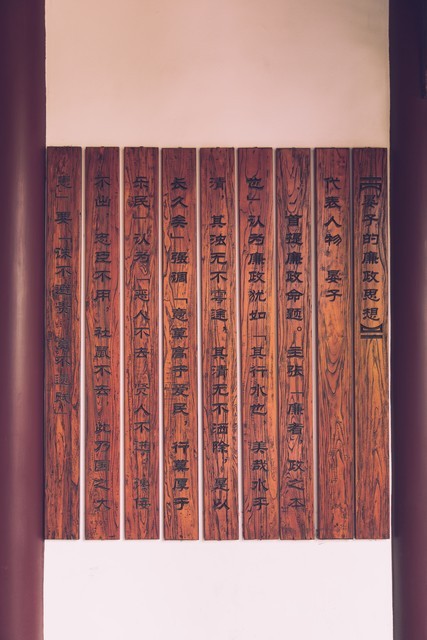 【晏子的廉政思想】
代表人物:晏子
首提廉政命题。主张「廉者,政之本
也」,认为廉政犹如「其行水也。美哉水乎
清,其浊无不雩途,其清无不洒除,是以
长久矣」强调「意莫高于爱民,行莫厚于
乐民」认为,「恶人不去,贤人不进,谗佞
不出,忠臣不用,社鼠不去,此乃国之大
患」要「诛不避贵,赏不遗贱」